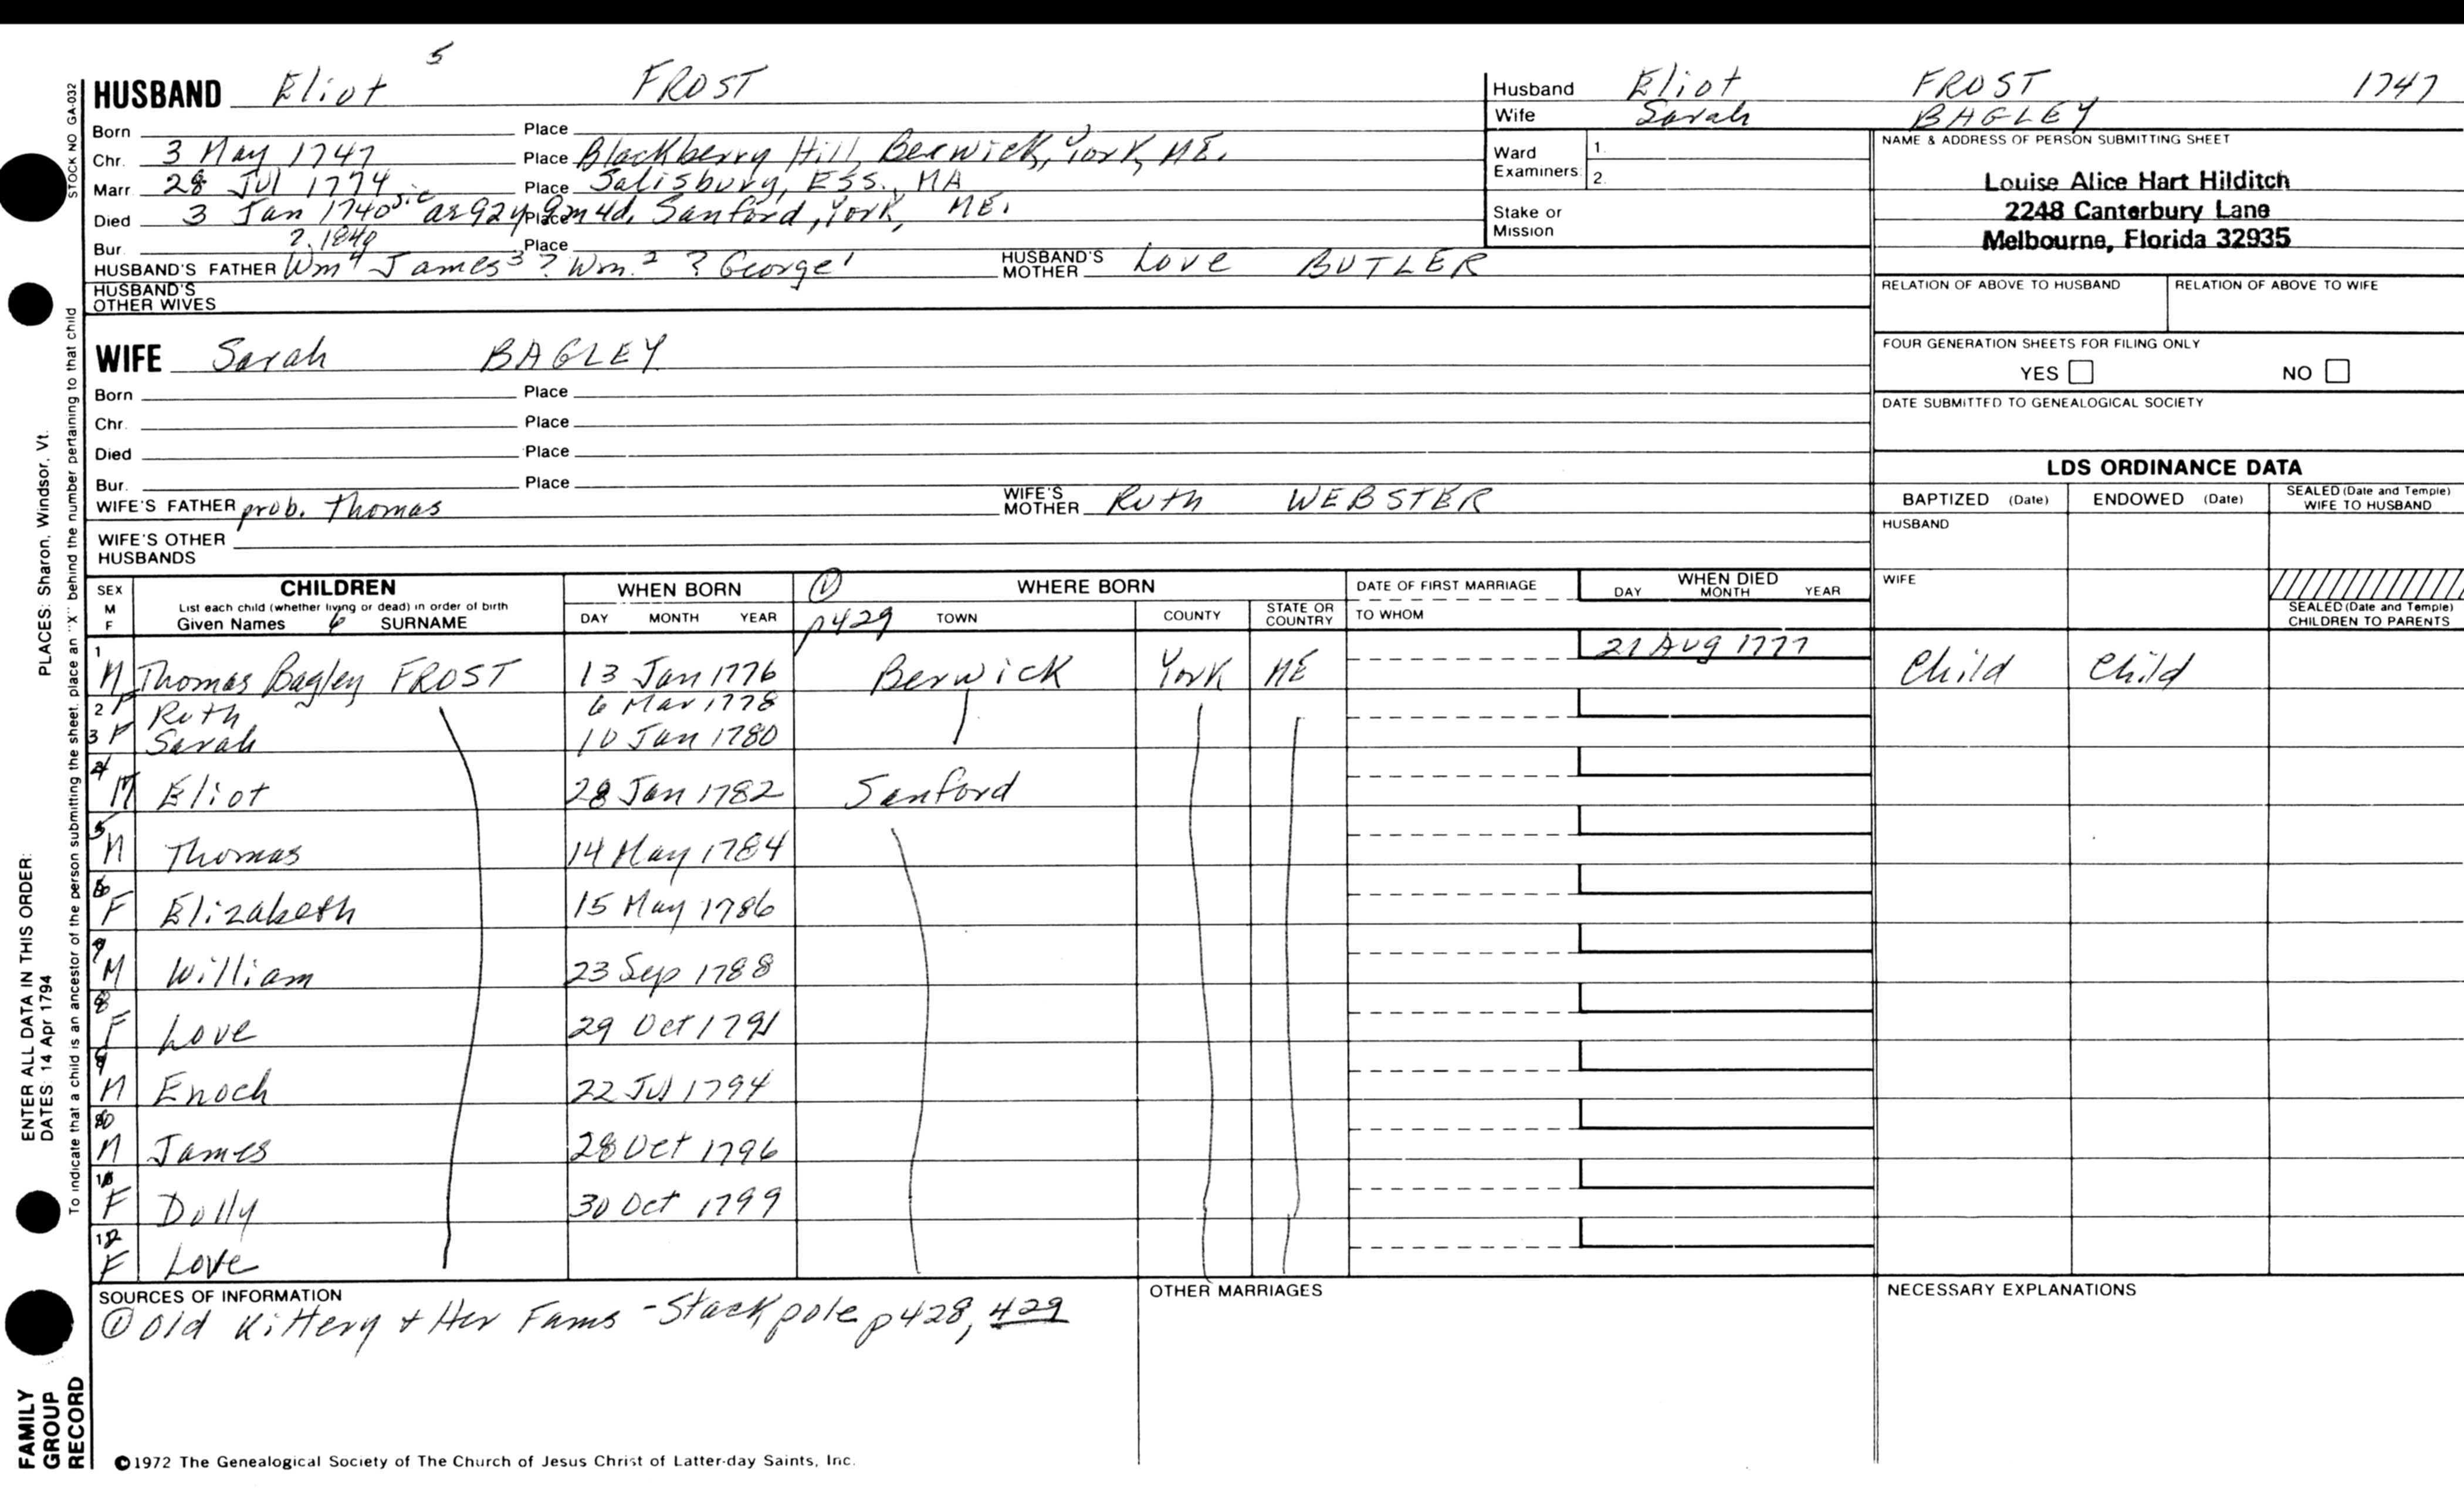 HUSBAND Eliot 5 FROST
Born Place
Chr. 3 May 1747 Place Blackberry Hill, Berwick, York, ME.
Marr. 28 Jul 1774 Place Salisbury, Ess., MA
Died 3 Jan 1740 sic ae 92y 9m 4d, Place Sanford, York, ME.
Bur. ?.1840 Place
HUSBAND'S FATHER Wm⁴ James³ ? Wm.² ? George¹ HUSBAND'S MOTHER Love BUTLER
HUSBAND'S OTHER WIVES
Husband Eliot FROST 1747
Wife Sarah BAGLEY
Ward Examiners: 1. 2.
Stake or Mission
NAME & ADDRESS OF PERSON SUBMITTING SHEET
Louise Alice Hart Hilditch
2248 Canterbury Lane
Melbourne, Florida 32935
RELATION OF ABOVE TO HUSBAND RELATION OF ABOVE TO WIFE
FOUR GENERATION SHEETS FOR FILING ONLY
YES NO
DATE SUBMITTED TO GENEALOGICAL SOCIETY
WIFE Sarah BAGLEY
Born Place
Chr. Place
Died Place
Bur. Place
WIFE'S FATHER prob. Thomas WIFE'S MOTHER Ruth WEBSTER
WIFE'S OTHER HUSBANDS
LDS ORDINANCE DATA
BAPTIZED (Date) ENDOWED (Date) SEALED (Date and Temple) WIFE TO HUSBAND
HUSBAND
WIFE
SEALED (Date and Temple) CHILDREN TO PARENTS
SEX M F
CHILDREN
List each child (whether living or dead) in order of birth
Given Names 6 SURNAME
WHEN BORN
DAY MONTH YEAR
① p429
WHERE BORN
TOWN COUNTY STATE OR COUNTRY
DATE OF FIRST MARRIAGE
TO WHOM
WHEN DIED
DAY MONTH YEAR
1 M Thomas Bagley FROST 13 Jan 1776 Berwick York ME 21 Aug 1777 Child Child
2 F Ruth 6 Mar 1778
3 F Sarah 10 Jan 1780
4 M Eliot 28 Jan 1782 Sanford
5 M Thomas 14 May 1784
6 F Elizabeth 15 May 1786
7 M William 23 Sep 1788
8 F Love 29 Oct 1791
9 M Enoch 22 Jul 1794
10 M James 28 Oct 1796
11 F Dolly 30 Oct 1799
12 F Love
SOURCES OF INFORMATION
① Old Kittery + Her Fams - Stackpole p428, 429
OTHER MARRIAGES
NECESSARY EXPLANATIONS
©1972 The Genealogical Society of The Church of Jesus Christ of Latter-day Saints, Inc.
STOCK NO GA-032
To indicate that a child is an ancestor of the person submitting the sheet, place an "X" behind the number pertaining to that child
ENTER ALL DATA IN THIS ORDER:
DATES: 14 Apr 1794
PLACES: Sharon, Windsor, Vt.
FAMILY GROUP RECORD